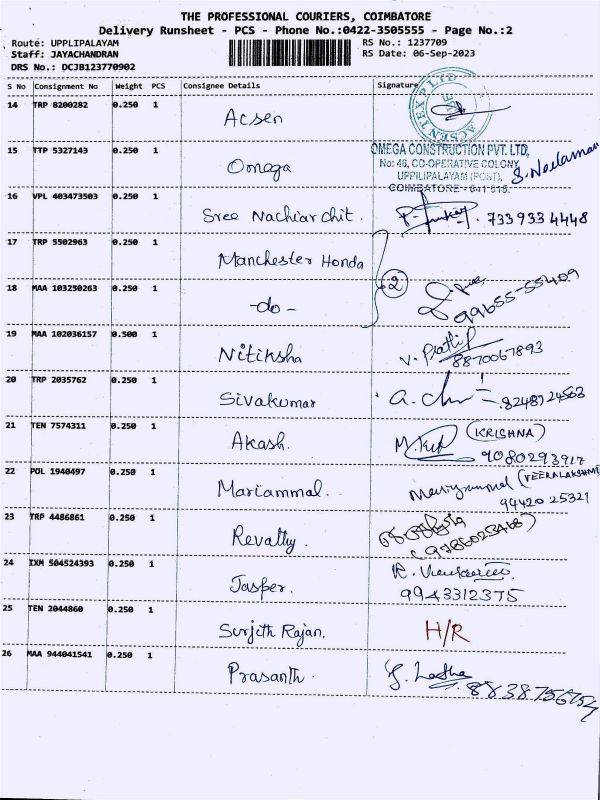 THE PROFESSIONAL COURIERS, COIMBATORE
Delivery Runsheet - PCS - Phone No.:0422-3505555 - Page No.:2
Route: UPPLIPALAYAM RS No.: 1237709
Staff: JAYACHANDRAN RS Date: 06-Sep-2023
DRS No.: DCJB123770902
S No Consignment No Weight PCS Consignee Details Signature
14 TRP 8200282 0.250 1 Acsen
ACSEN TEX P LTD
15 TTP 5327143 0.250 1 Omega
OMEGA CONSTRUCTION PVT. LTD,
No: 46, CO-OPERATIVE COLONY,
UPPILIPALAYAM (POST),
COIMBATORE - 641 015.
S. Neelaman
16 VPL 403473503 0.250 1 Sree Nachiar chit. 733933 4448
17 TRP 5502963 0.250 1 Manchester Honda
2
18 MAA 103250263 0.250 1 -do- 99655-55409
19 MAA 102036157 0.500 1 Nitiksha V. Prathip 8870067893
20 TRP 2035762 0.250 1 Sivakumar 8248724563
21 TEN 7574311 0.250 1 Akash. (KRISHNA)
9080293917
22 POL 1940497 0.250 1 Mariammal. (VEERALAKSHMI)
94420 25321
23 TRP 4486861 0.250 1 Revathy.
24 IXM 504524393 0.250 1 Jasper.
9943312375
25 TEN 2044860 0.250 1 Surjith Rajan. H/R
26 MAA 944041541 0.250 1 Prasanth.